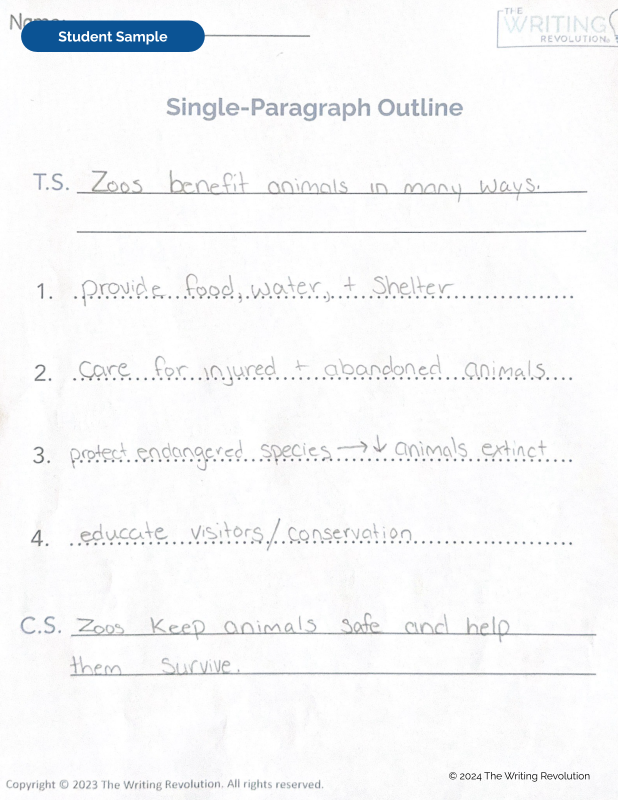 Name:
Student Sample
THE
WRITING
REVOLUTION®
Single-Paragraph Outline
T.S. Zoos benefit animals in many ways.
1. provide food, water, + Shelter
2. care for injured + abandoned animals
3. protect endangered species →↓ animals extinct
4. educate visitors/conservation
C.S. Zoos Keep animals safe and help
them survive.
© 2024 The Writing Revolution
Copyright © 2023 The Writing Revolution. All rights reserved.